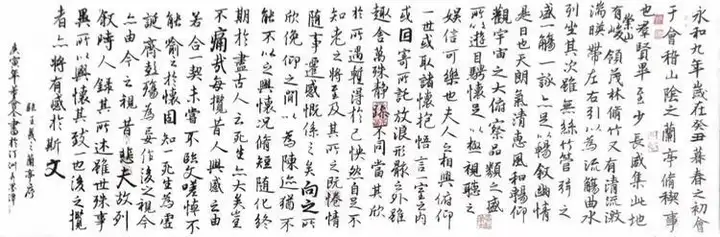 永和九年歲在癸丑暮春之初會
于會稽山陰之蘭亭脩稧事
也羣賢畢至少長咸集此地
崇山
有峻領茂林脩竹又有清流激
湍暎帶左右引以為流觴曲水
列坐其次雖無絲竹管弦之
盛一觴一詠亦足以暢敘幽情
是日也天朗氣清惠風和暢仰
觀宇宙之大俯察品類之盛
所以遊目騁懷足以極視聽之
娛信可樂也夫人之相與俯仰
一世或取諸懷抱悟言一室之內
或因寄所託放浪形骸之外雖
趣舍萬殊靜躁不同當其欣
於所遇暫得於己怏然自足不
知老之將至及其所之既惓情
隨事遷感慨係之矣向之所
欣俛仰之間以為陳迹猶不
能不以之興懷況脩短隨化終
期於盡古人云死生亦大矣豈
不痛哉每攬昔人興感之由
若合一契未嘗不臨文嗟悼不
能喻之於懷固知一死生為虛
誕齊彭殤為妄作後之視今
亦由今之視昔悲夫故列
敘時人錄其所述雖世殊事
異所以興懷其致一也後之攬
者亦將有感於斯文
臨王羲之蘭亭序
庚寅年